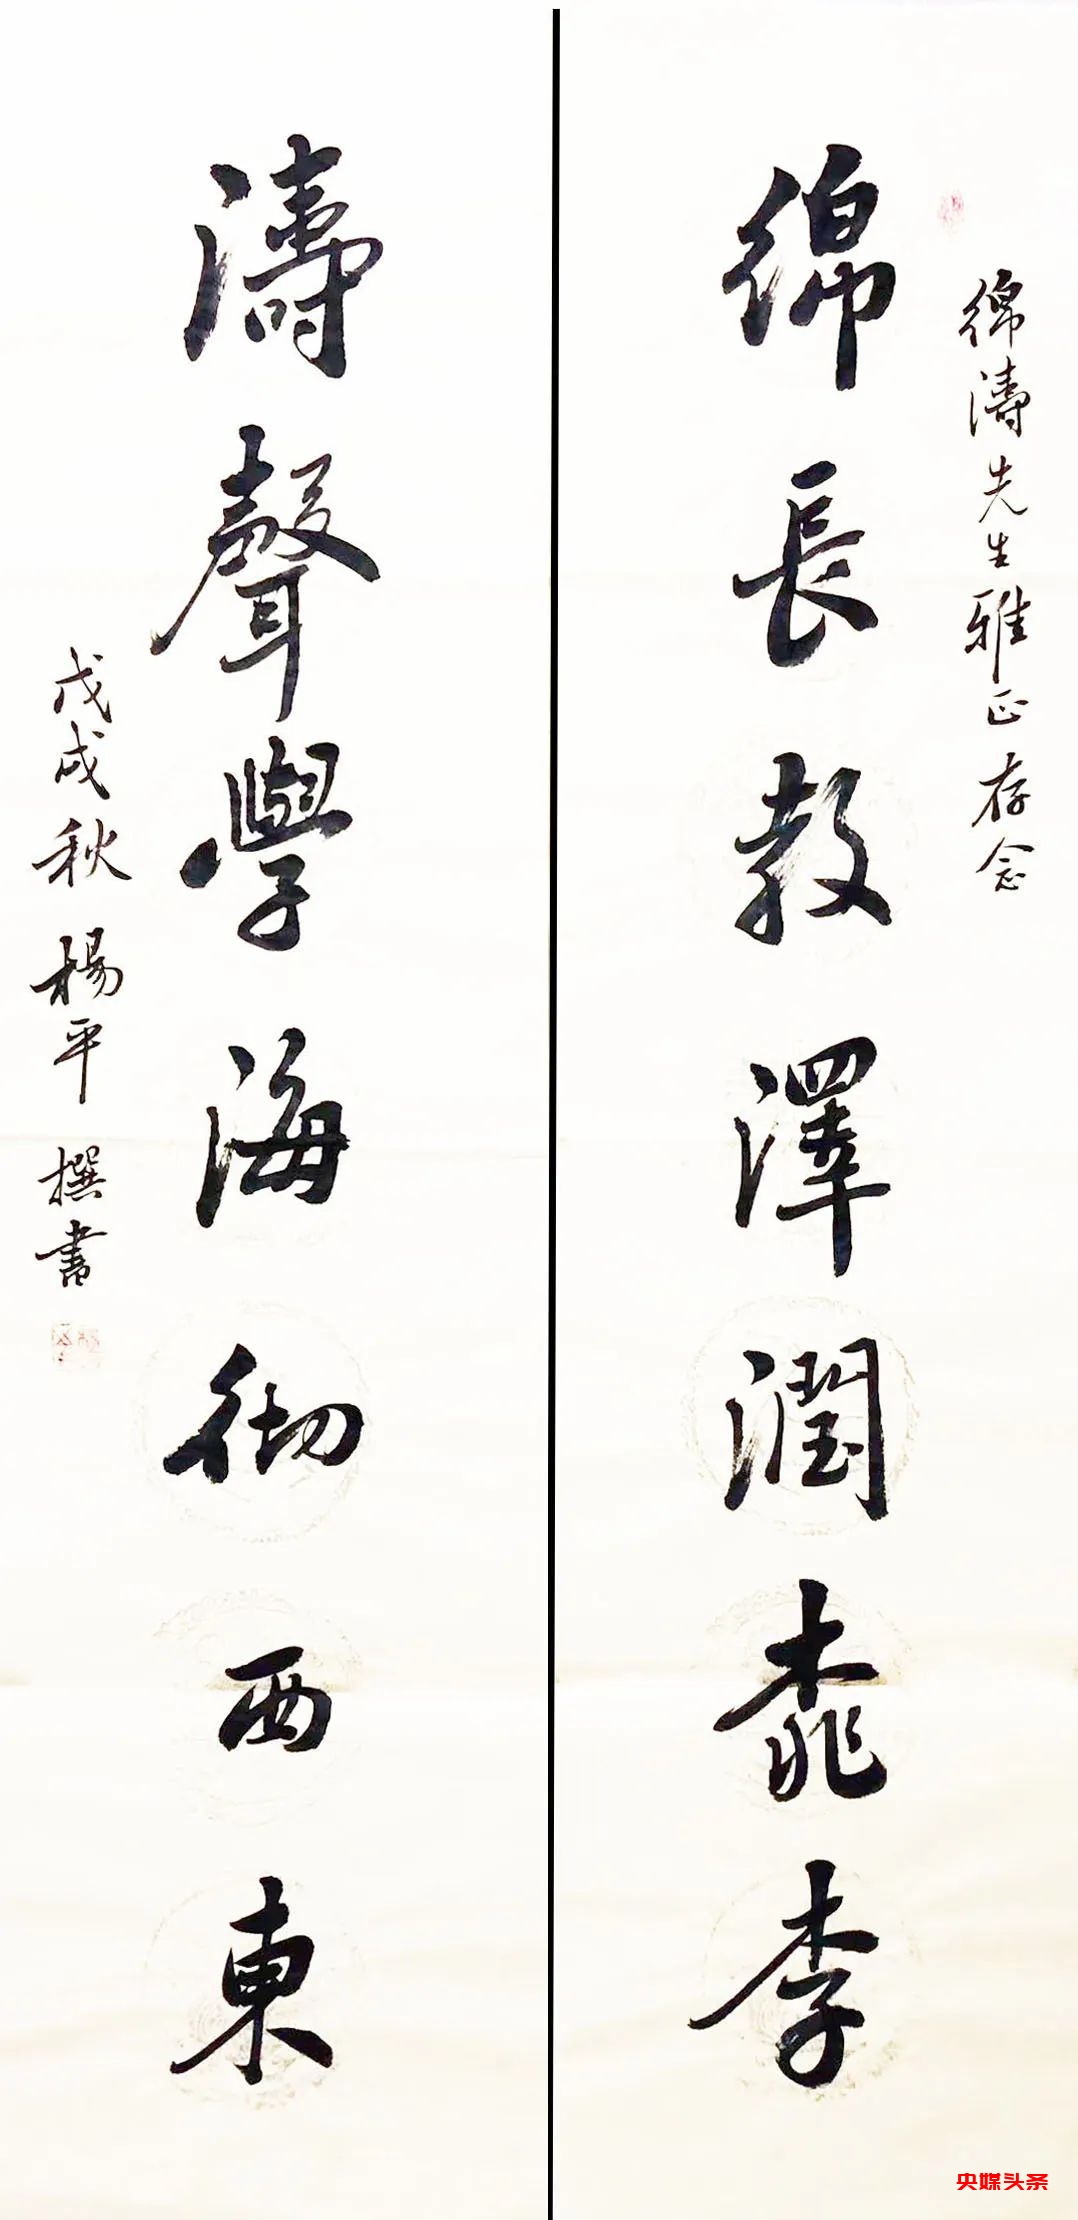 綿濤先生雅正存念
綿長教澤潤桃李
濤聲學海徹西東
戊戌秋 楊平 撰書
央媒头条